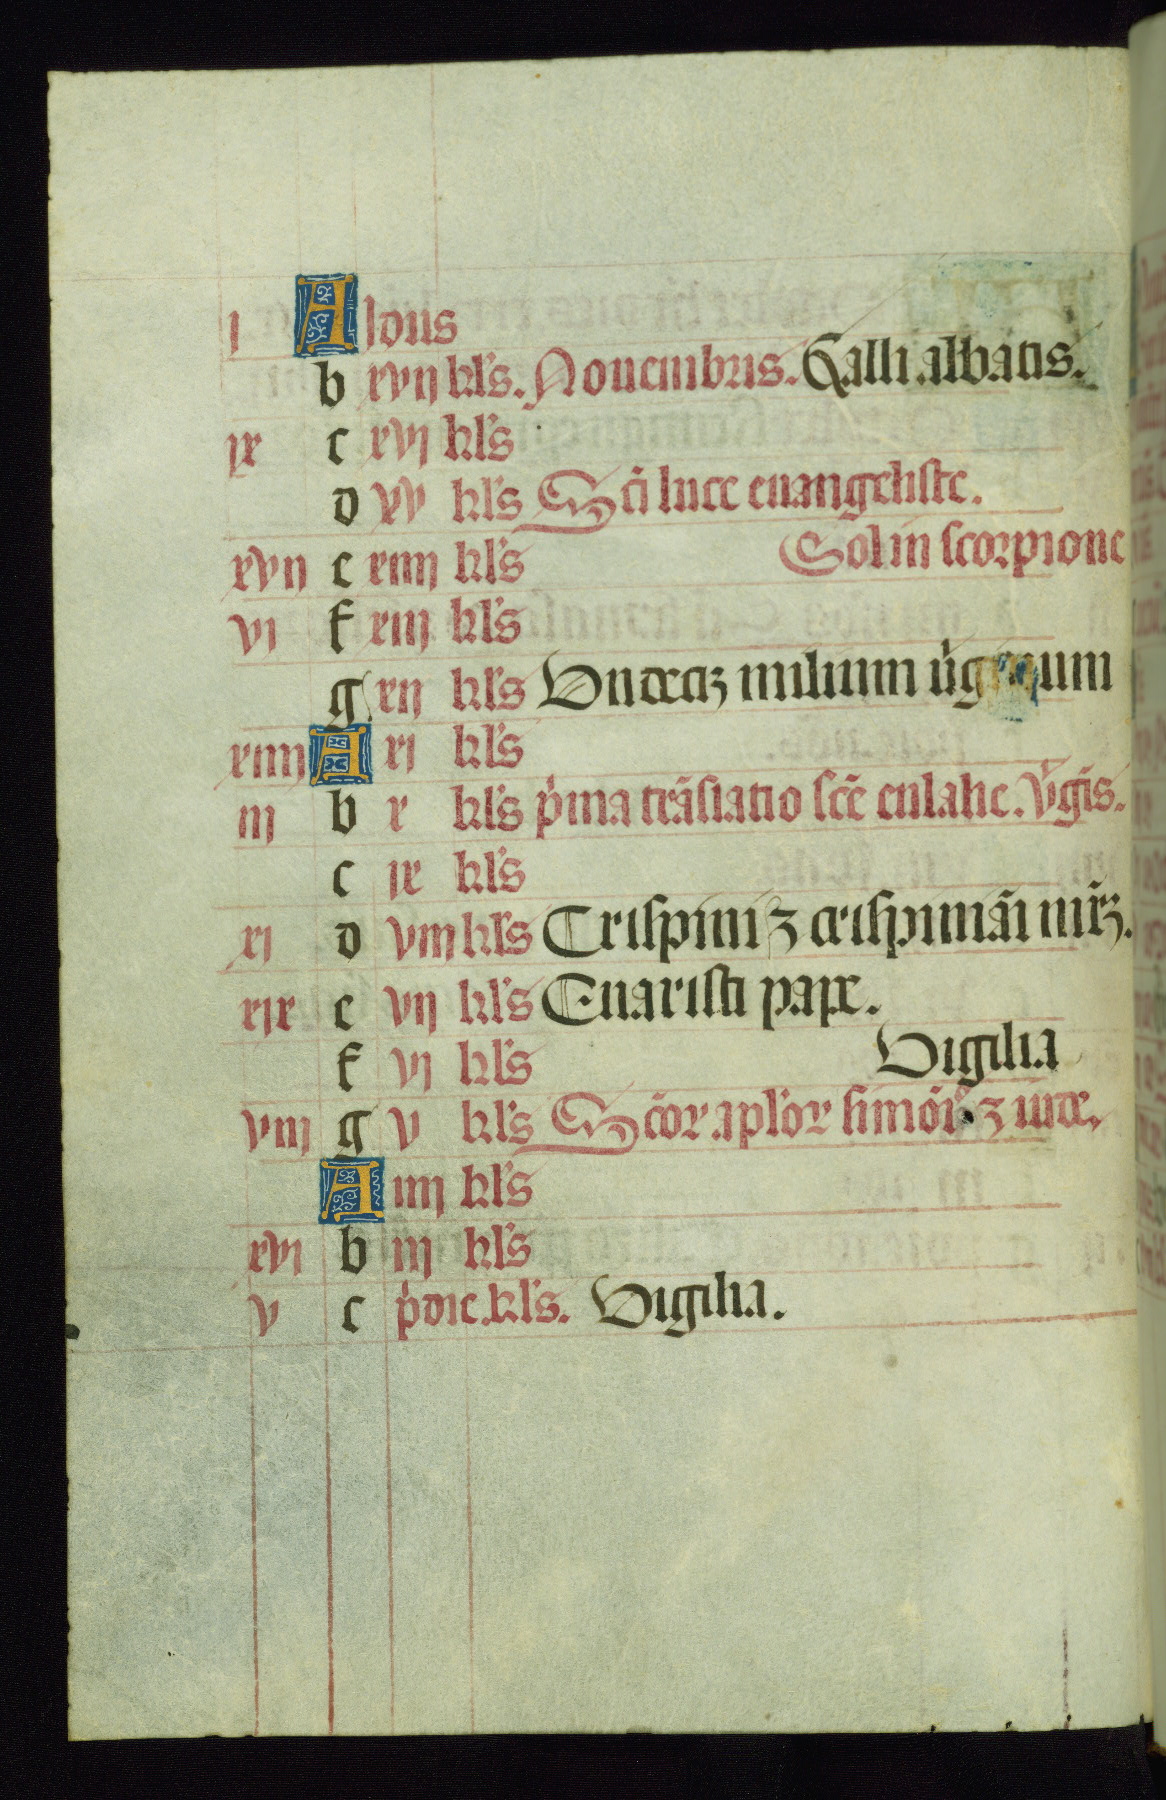 i A Idus
b xvij kl's. Nouembris. Galli abbatis.
ix c xvj kl's
d xv kl's Scī luce euangeliste.
xvij e xiiij kl's Sol in scorpione
vi f xiij kl's
g xij kl's Vndecīȝ milium u'ginum
xiiij A xj kl's
iij b x kl's p'ma trāslatio scē eulalie. v'gīs.
c ix kl's
xj d viij kl's Crispini ⁊ crispiniāi mr̄ȝ.
xix e vij kl's Euaristi pape.
f vj kl's Vigilia
viij g v kl's Scōr apl'or simōis ⁊ iude.
A iiij kl's
xvi b iij kl's
v c p'die. kl's. Vigilia.